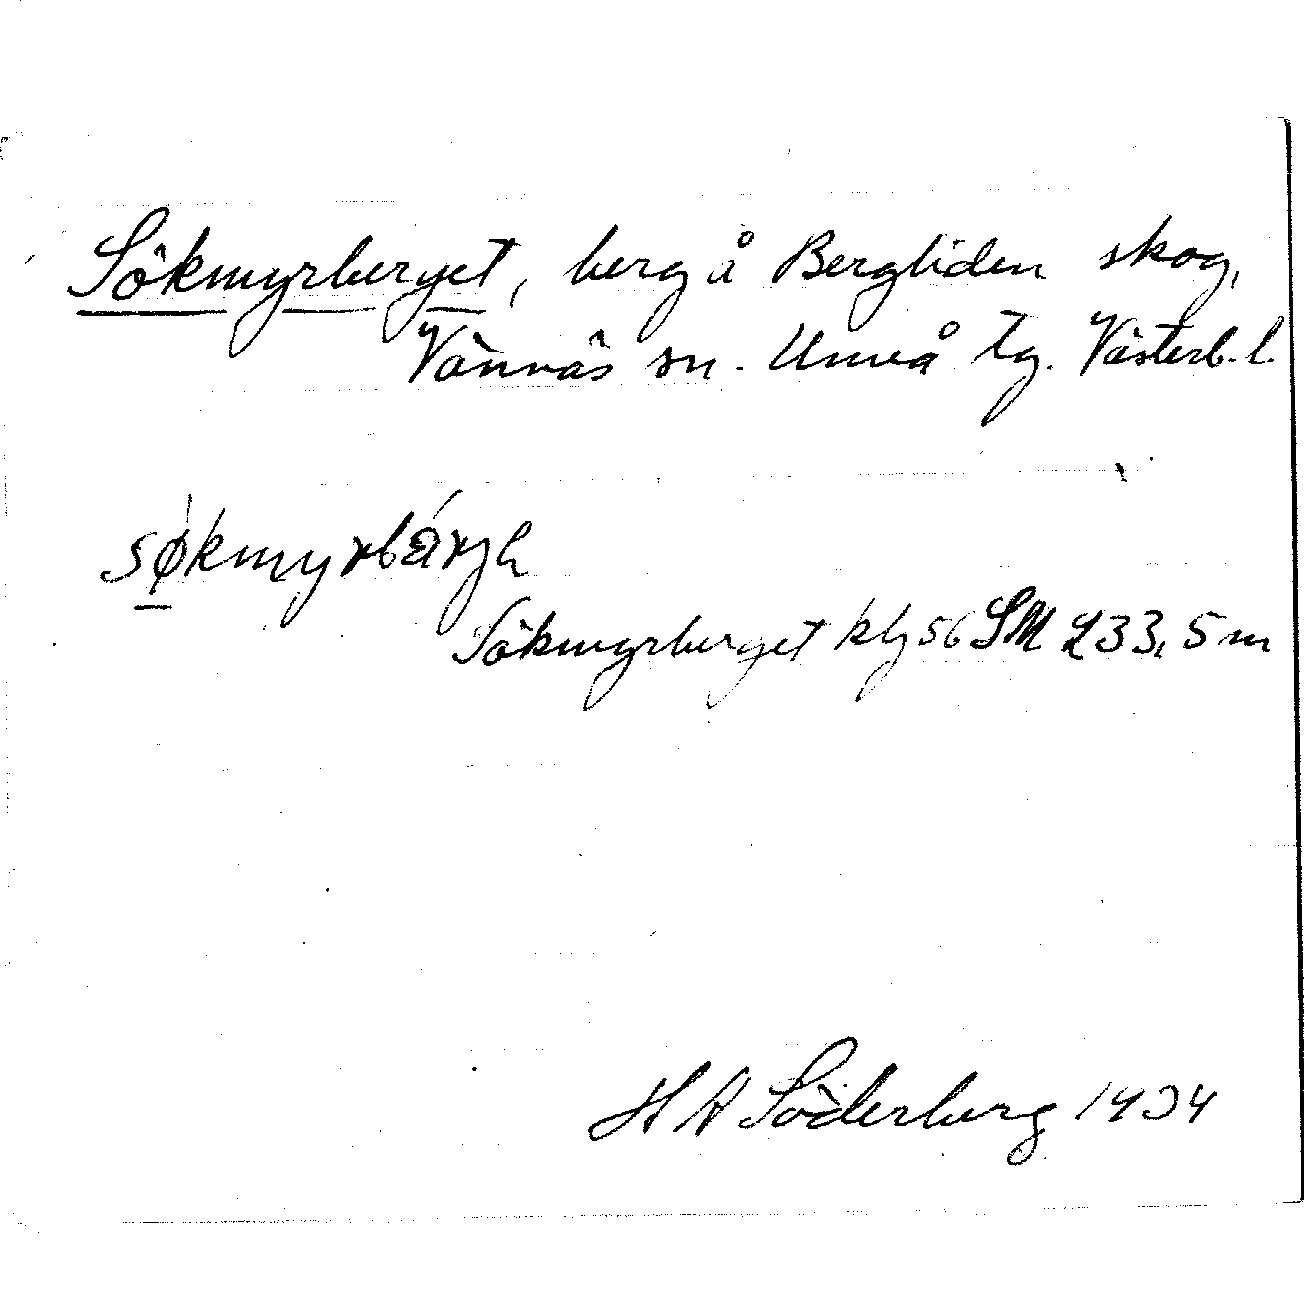 Sökmyrberget, berg å Bergliden skog,
Vännäs sn. Umeå tg. Västerb. l.
Sökmyrberget kbg 56 SM 233,5 m
H A Söderberg 1934